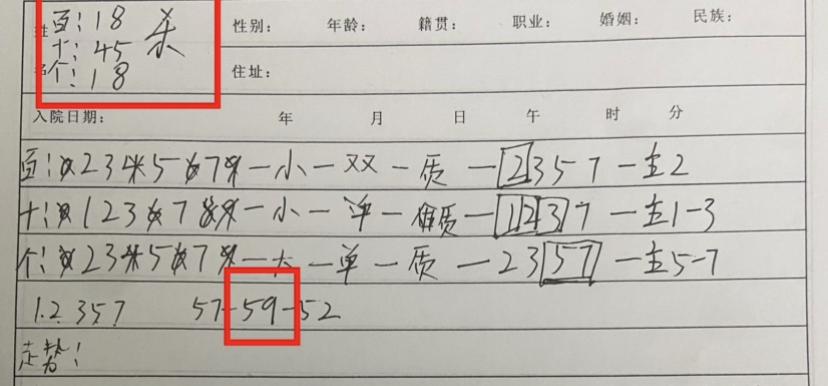 姓 百:18 杀 性别: 年龄: 籍贯: 职业: 婚姻: 民族:
十:45
名 个:18 住址:
入院日期: 年 月 日 午 时 分
百:0234567一小一双一质一2357一主2
十:012367一小一单一质一1237一主1-3
个:234567一大一单一质一2357一主5-7
1.2357 57-59-52
走势: